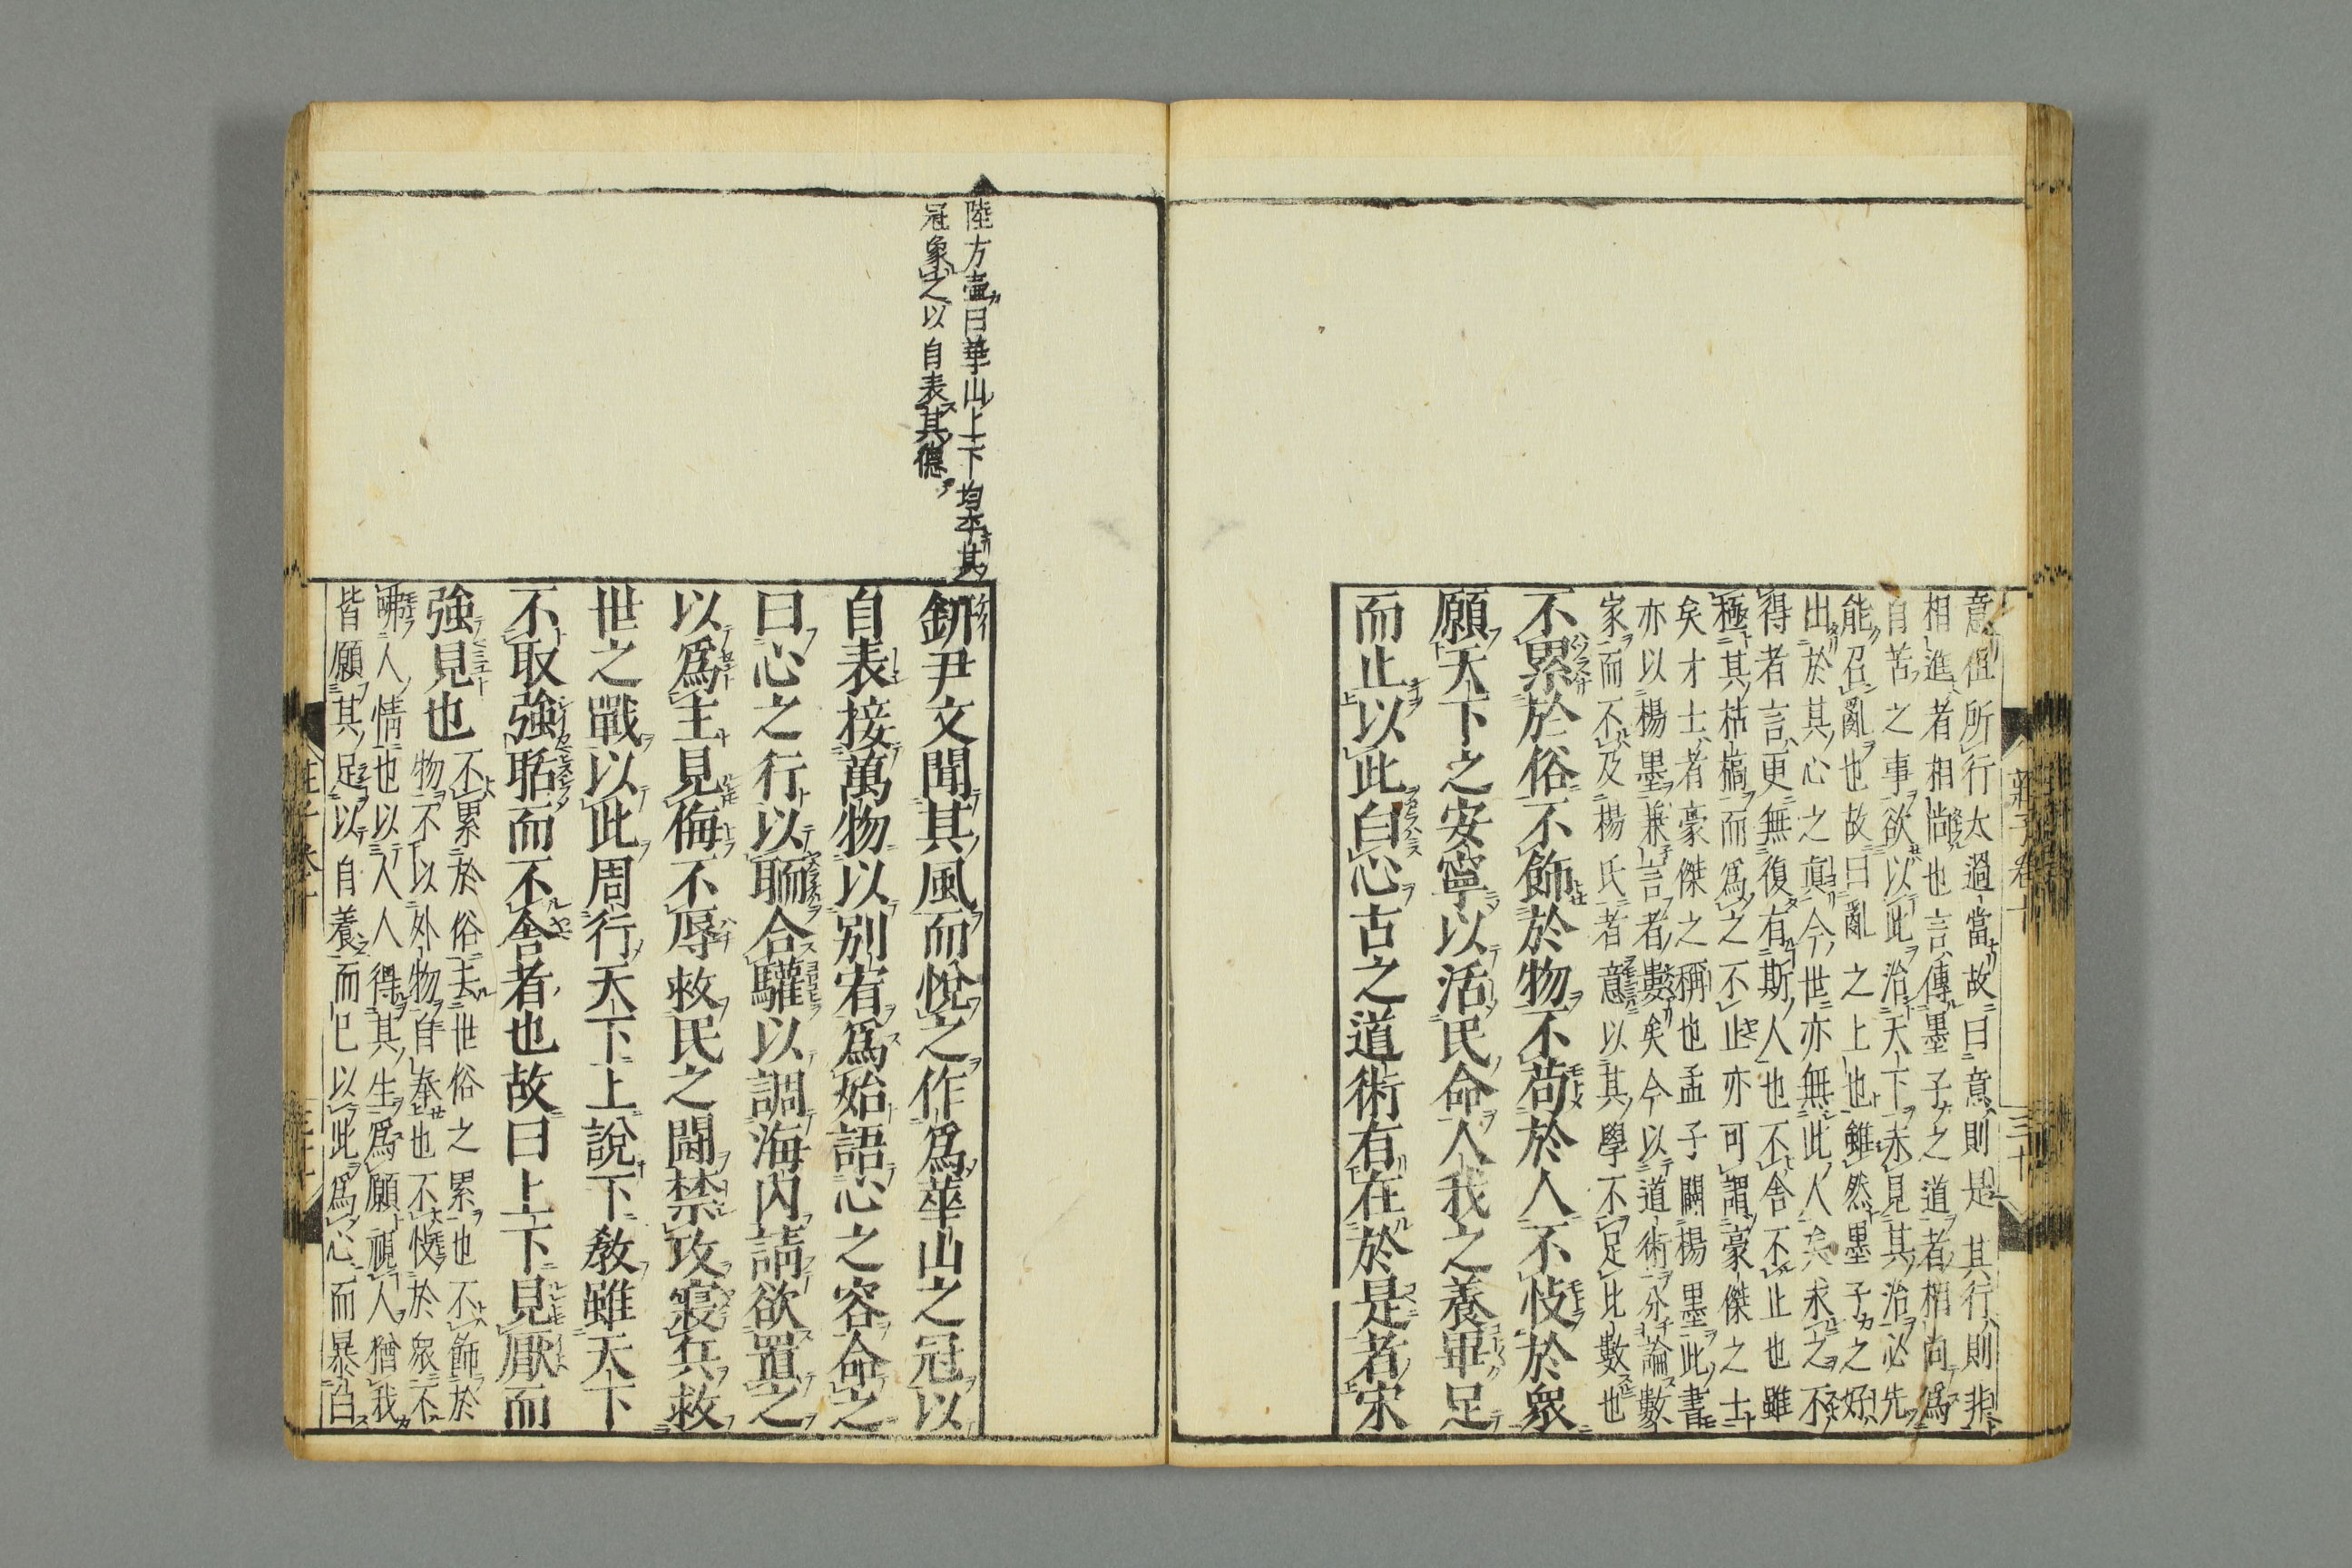 意但所行太過當故曰意則是其行則非
相進者相尚也言傳墨子之道者相尚爲
自苦之事欲以此治天下未見其治必先
能召亂也故曰亂之上也雖然墨子之好
出於其心之眞今世亦無此人矣求之不
得者言更無復有斯人也不舍不止也雖
極其枯槁而爲之不止亦可謂豪傑之士
矣才士者豪傑之稱也孟子闢楊墨此書
亦以楊墨兼言者數矣今以道術分論數
家而不及楊氏者意以其學不足比數也
不累於俗不飾於物不苟於人不忮於衆
願天下之安寧以活民命人我之養畢足
而止以此白心古之道術有在於是者宋
莊子卷十
三十
陸方壷曰華山上下均平其
冠象之以自表其德
鈃尹文聞其風而悅之作爲華山之冠以
自表接萬物以別宥爲始語心之容命之
曰心之行以聏合驩以調海內請欲置之
以爲主見侮不辱救民之鬬禁攻寢兵救
世之戰以此周行天下上說下敎雖天下
不取強聒而不舍者也故曰上下見厭而
強見也
不累於俗去世俗之累也不飾於
物不以外物自奉也不忮於衆不
咈人情也以人人得其生爲願視人猶我
皆願其足以自養而已以此爲心而暴白